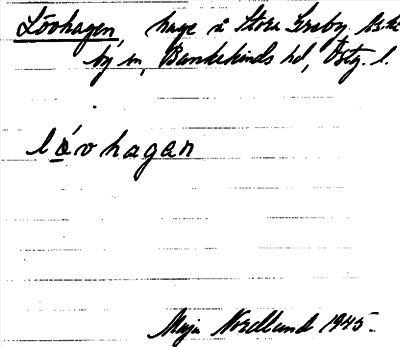 Lövhagen, hage å Stora Greby, Askeby sn, Bankekinds hd, Östg. l.
lǫ́vhagan
Maja Nordlund 1945.